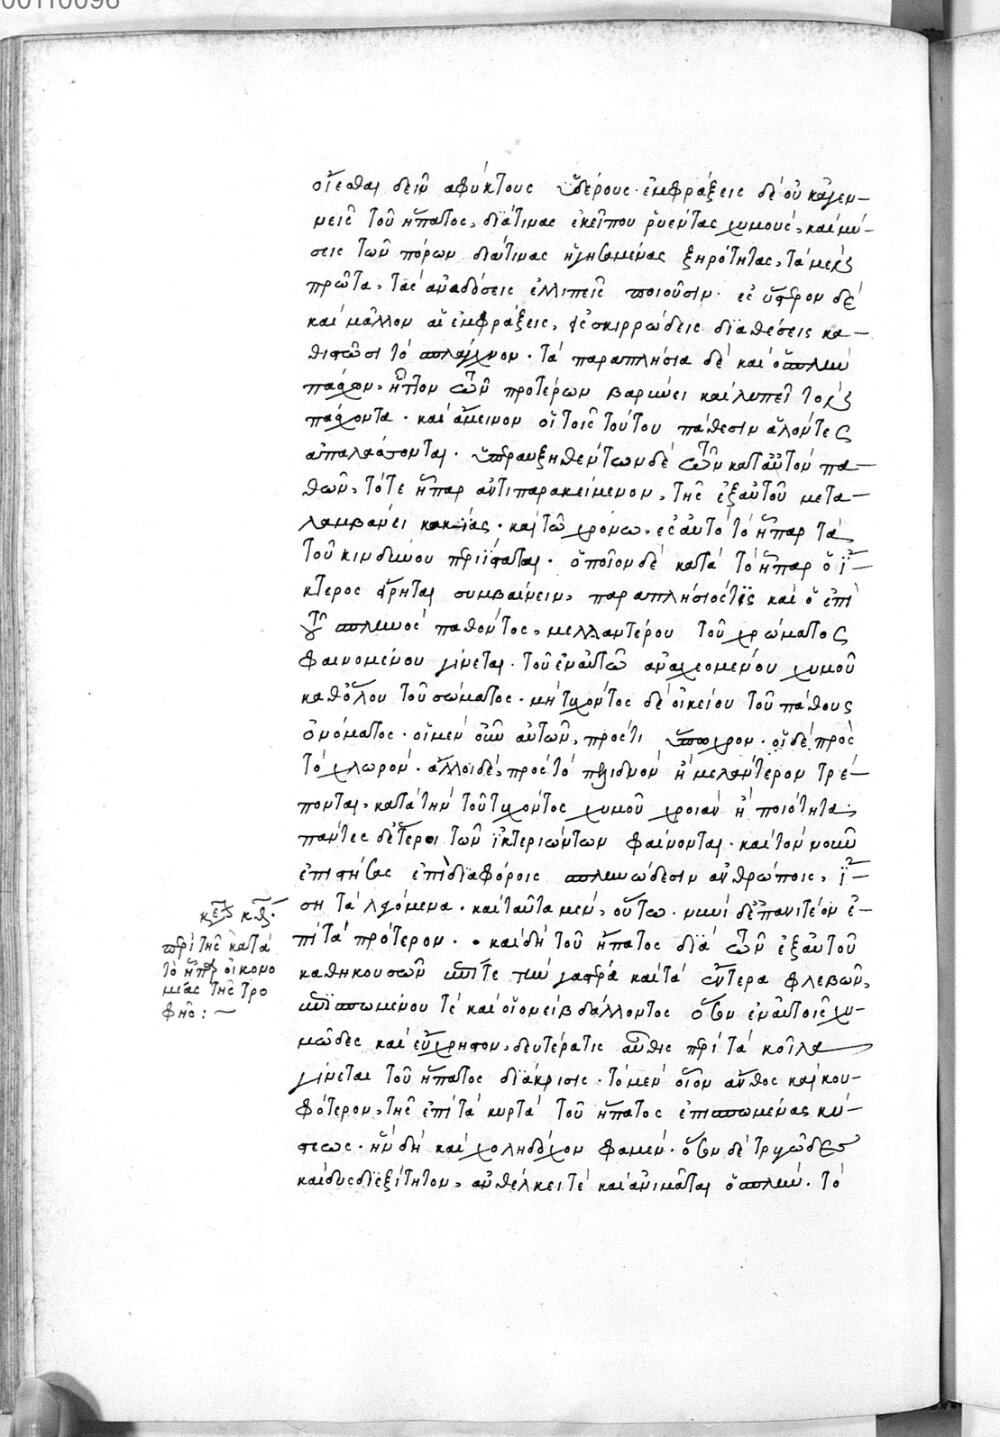 00110098
οἴεσθαι δεῖν ἀφύκτους ὑδέρους· ἐμφράξεις δὲ οὐ καὶ ἐν
μὲν τοῦ ἥπατος, διά τινας ἐκείπου ῥυέντας χυμοὺς, καὶ μύ-
σεις τῶν πόρων διά τινας ἡγησαμένας ξηρότητας, τὰ μὲν
πρῶτα, τὰς ἀναδόσεις ἐλλιπεῖς ποιοῦσιν· ἐς ὕστερον δὲ
καὶ μᾶλλον αἱ ἐμφράξεις, ἐς σκιρρώδεις διαθέσεις κα-
θιστῶσι τὸ σπλάγχνον· τὰ παραπλήσια δὲ καὶ ὁ σπλὴν
πάσχων, ἧττον τῶν προτέρων βαρύνει καὶ λυπεῖ τοὺς
πάσχοντα· καὶ ἄμεινον οἱ τοῖς τούτου πάθεσιν ἁλόντες
ἀπαλάσσονται· ὑπεραυξηθέντων δὲ τῶν κατ αὐτὸν πα-
θῶν, τότε ἧπαρ ἀντιπαρακείμενον, τῆς ἐξ αὐτοῦ μετα-
λαμβάνει κακίας· καὶ τῶ χρόνω, ἐς αὐτὸ τὸ ἧπαρ τὰ
τοῦ κινδύνου περιΐσταται· ὁποῖον δὲ κατὰ τὸ ἧπαρ ὁ ἴ-
κτερος εἴρηται συμβαίνειν, παραπλήσιός τις καὶ ὁ ἐπὶ
τοῦ σπληνὸς παθόντος, μελαντέρου τοῦ χρώματος
φαινομένου γίνεται· τοῦ ἐν αὐτῶ ἀναχεομένου χυμοῦ
καθόλου τοῦ σώματος· μὴ τυχόντος δὲ οἰκείου τοῦ πάθους
ὀνόματος· οἱ μὲν οὖν αὐτῶν, πρὸς τὶ ὕπωχρον· οἱ δὲ πρὸς
τὸ χλωρόν· ἄλλοι δὲ, πρὸς τὸ πελιδνὸν ἢ μελάντερον τρέ-
πονται, κατὰ τὴν τοῦ τυχόντος χυμοῦ χροιὰν ἢ ποιότητα·
πάντες δ ἕτεροι τῶν ἰκτεριώντων φαίνονται· καὶ τὸν νοῦν
ἐπιστήσας ἐπὶ διαφόροις σπληνώδεσιν ἀνθρώποις, ἴ-
ση τὰ λεγόμενα· καὶ ταῦτα μὲν, οὕτω· νυνὶ δ ἐπανιτέον ἐ-
πὶ τὰ πρότερον· καὶ δὴ τοῦ ἥπατος διὰ τῶν ἐξ αὐτοῦ
καθηκουσῶν ἐπί τε τὴν γαστέρα καὶ τὰ ἔντερα φλεβῶν,
ἐπισπωμένου τὲ καὶ οἱονεὶ βδάλλοντος ὅσον ἐν αὐτοῖς χυ-
μῶδες καὶ εὔχρηστον, δευτέρα τις αὖθις περὶ τὰ κοῖλα
γίνεται τοῦ ἥπατος διάκρισις· τὸ μὲν οἷον ἄνθος καὶ κου-
φότερον, τῆς ἐπὶ τὰ κυρτὰ τοῦ ἥπατος ἐπισπωμένας κύ-
στεως· ἣν δὴ καὶ χοληδόχον φαμέν· ὅσον δὲ τρυγῶδες
καὶ δυσδιεξίτητον, ἀνθέλκει τὲ καὶ ἀνιμᾶται ὁ σπλήν· τὸ
περὶ τῆς κατὰ
τὸ ἧπαρ οἰκονο
μίας τῆς τρο
φῆς: ~